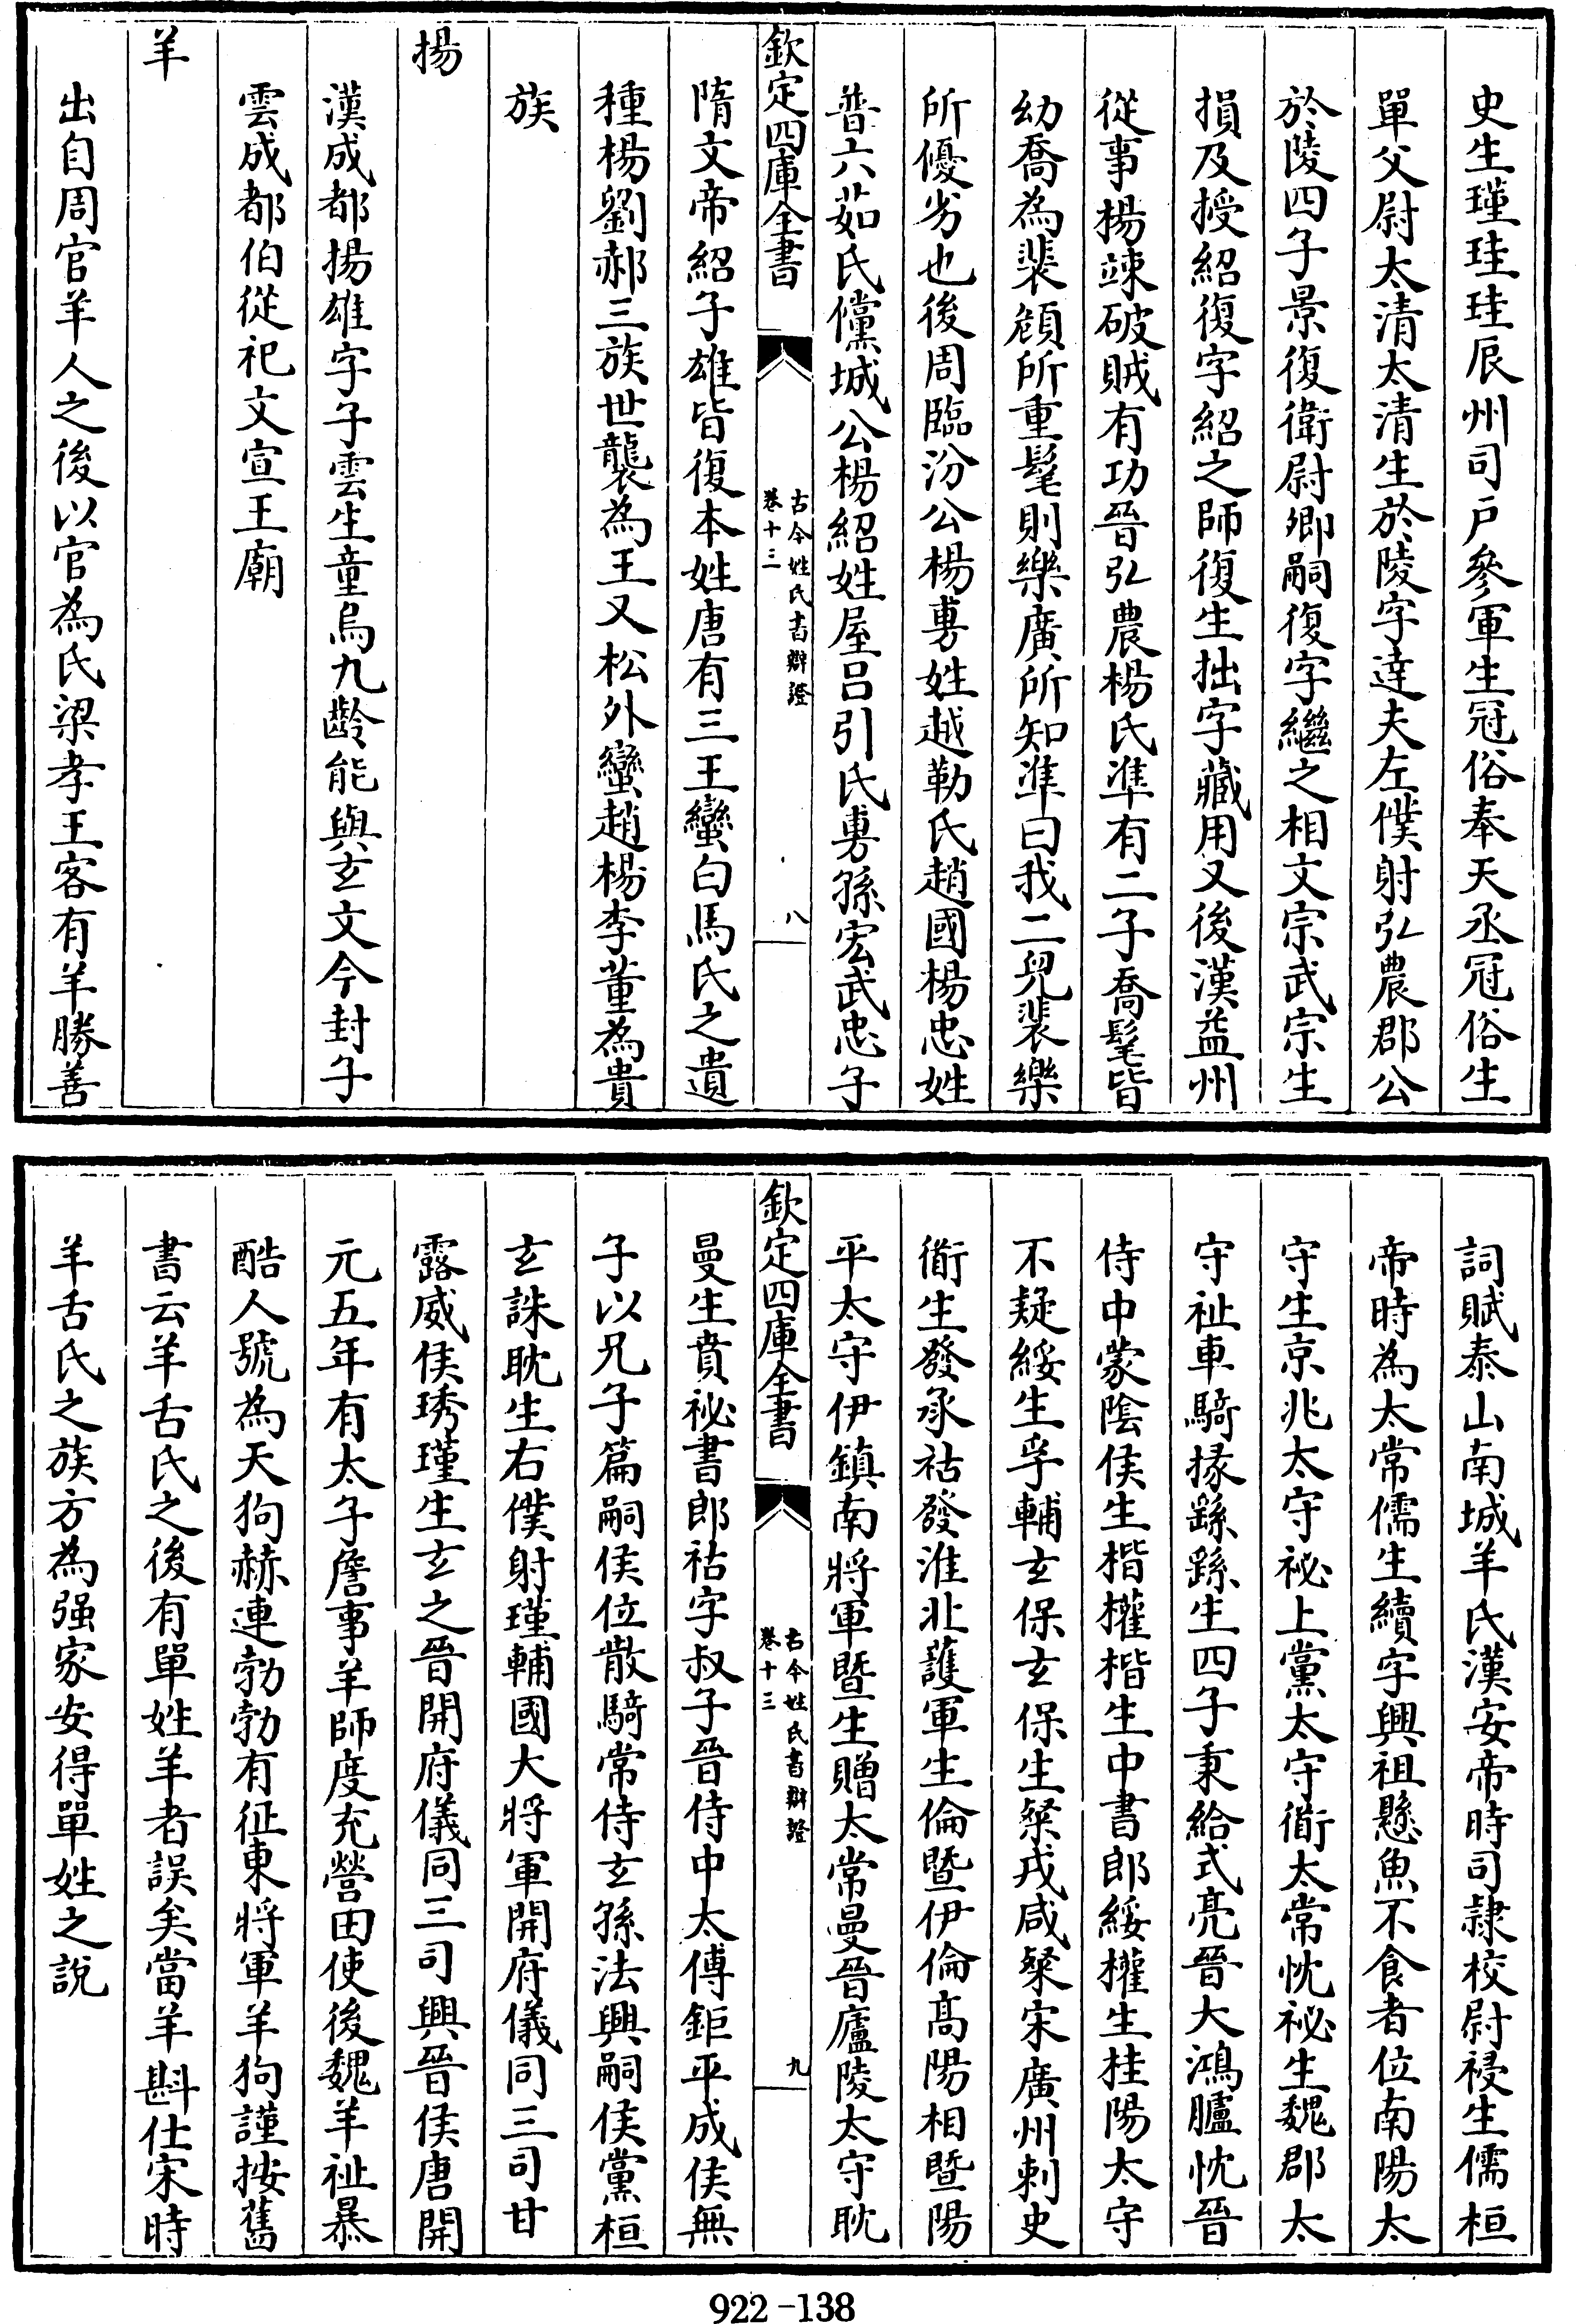 史生瑾珪珪辰州司戶參軍生冠俗奉天丞冠俗生
單父尉太清太清生於陵字達夫左僕射弘農郡公
於陵四子景復衛尉卿嗣復字繼之相文宗武宗生
損及授紹復字紹之師復生拙字藏用又後漢益州
從事楊竦破賊有功晉弘農楊氏準有二子喬髦皆
幼喬為裴頠所重髦則樂廣所知準曰我二兒裴樂
所優劣也後周臨汾公楊旉姓越勒氏趙國楊忠姓
普六茹氏儻城公楊紹姓屋呂引氏旉孫宏武忠子
欽定四庫全書
古今姓氏書辯證
卷十三
八
隋文帝紹子雄皆復本姓唐有三王蠻白馬氏之遺
種楊劉郝三族世襲為王又松外蠻趙楊李董為貴
族
揚
漢成都揚雄字子雲生童烏九齡能與玄文今封子
雲成都伯從祀文宣王廟
羊
出自周官羊人之後以官為氏梁孝王客有羊勝善
詞賦泰山南城羊氏漢安帝時司隷校尉祲生儒桓
帝時為太常儒生續字興祖懸魚不食者位南陽太
守生京兆太守祕上黨太守衜太常忱祕生魏郡太
守祉車騎掾繇繇生四子秉給式亮晉大鴻臚忱晉
侍中蒙陰侯生楷權楷生中書郎綏權生桂陽太守
不疑綏生孚輔玄保玄保生粲戎咸粲宋廣州刺史
衜生發承祜發淮北護軍生倫暨伊倫高陽相暨陽
平太守伊鎮南將軍暨生贈太常曼晉廬陵太守耽
欽定四庫全書
古今姓氏書辯證
卷十三
九
曼生賁祕書郎祜字叔子晉侍中太傅鉅平成侯無
子以兄子篇嗣侯位散騎常侍玄孫法興嗣侯黨桓
玄誅耽生右僕射瑾輔國大將軍開府儀同三司甘
露威侯琇瑾生玄之晉開府儀同三司興晉侯唐開
元五年有太子詹事羊師度充營田使後魏羊祉暴
酷人號為天狗赫連勃勃有征東將軍羊狗謹按舊
書云羊舌氏之後有單姓羊者誤矣當羊斟仕宋時
羊舌氏之族方為强家安得單姓之說
922-138